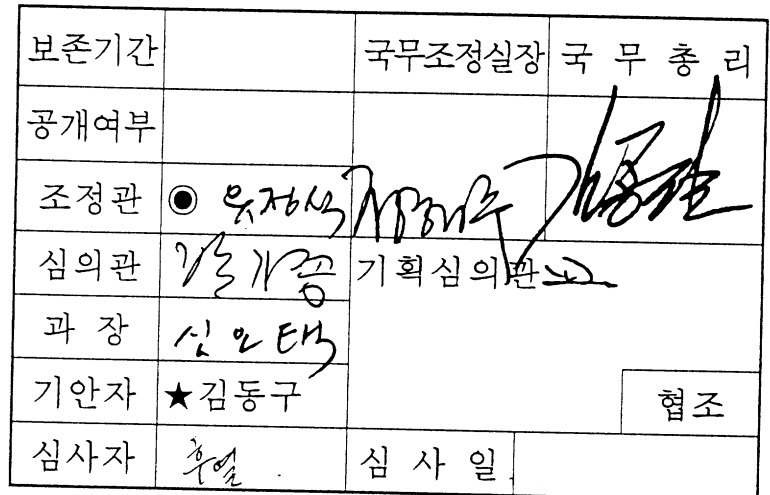 보존기간 국무조정실장 국 무 총 리
공개여부
조정관 ◉ 유정석
심의관 기획심의관
과 장 신인택
기안자 ★김동구
협조
심사자 심 사 일